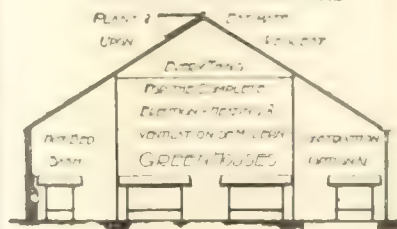 PLANS & ESTIMATE
UPON REQUEST
EVERYTHING
FOR THE COMPLETE
ERECTION, HEATING &
VENTILATION OF MODERN
GREENHOUSES
HOT BED
SASH